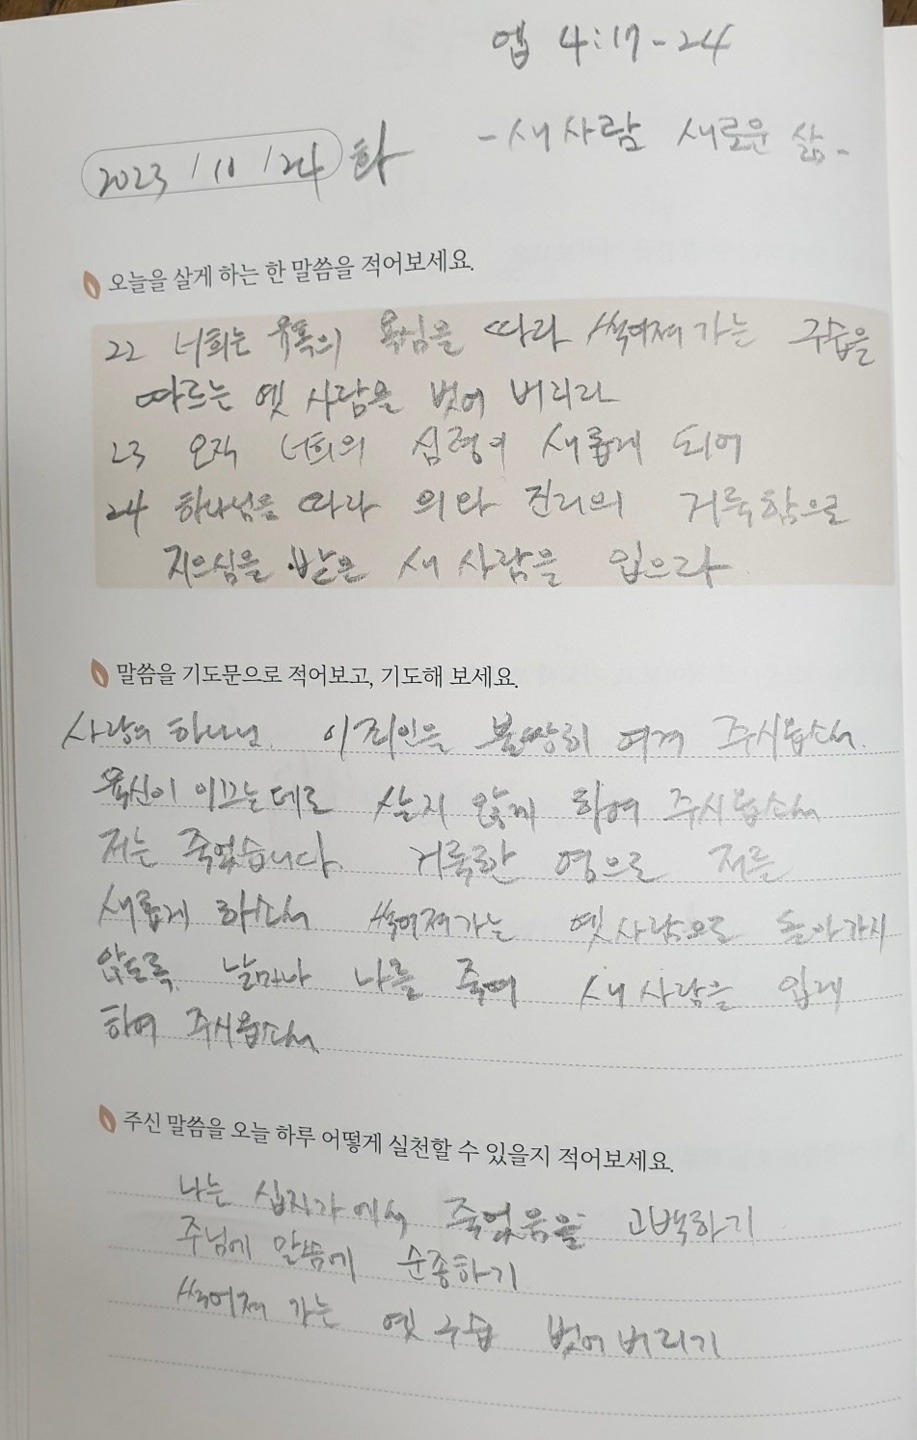 엡 4:17-24
2023 / 10 / 24 화
-새사람 새로운 삶-
오늘을 살게 하는 한 말씀을 적어보세요.
22 너희는 유혹의 욕심을 따라 썩어져 가는 구습을
따르는 옛 사람을 벗어 버리라
23 오직 너희의 심령이 새롭게 되어
24 하나님을 따라 의와 진리의 거룩함으로
지으심을 받은 새 사람을 입으라
말씀을 기도문으로 적어보고, 기도해 보세요.
사랑의 하나님. 이 죄인을 불쌍히 여겨 주시옵소서.
육신이 이끄는데로 살지 않게 하여 주시옵소서
저는 죽었습니다. 거룩한 영으로 저를
새롭게 하소서 썩어져가는 옛사람으로 돌아가지
않도록 날마다 나를 죽여 새 사람을 입게
하여 주시옵소서.
주신 말씀을 오늘 하루 어떻게 실천할 수 있을지 적어보세요.
나는 십자가에서 죽었음을 고백하기
주님에 말씀에 순종하기
썩어져 가는 옛 구습 벗어버리기